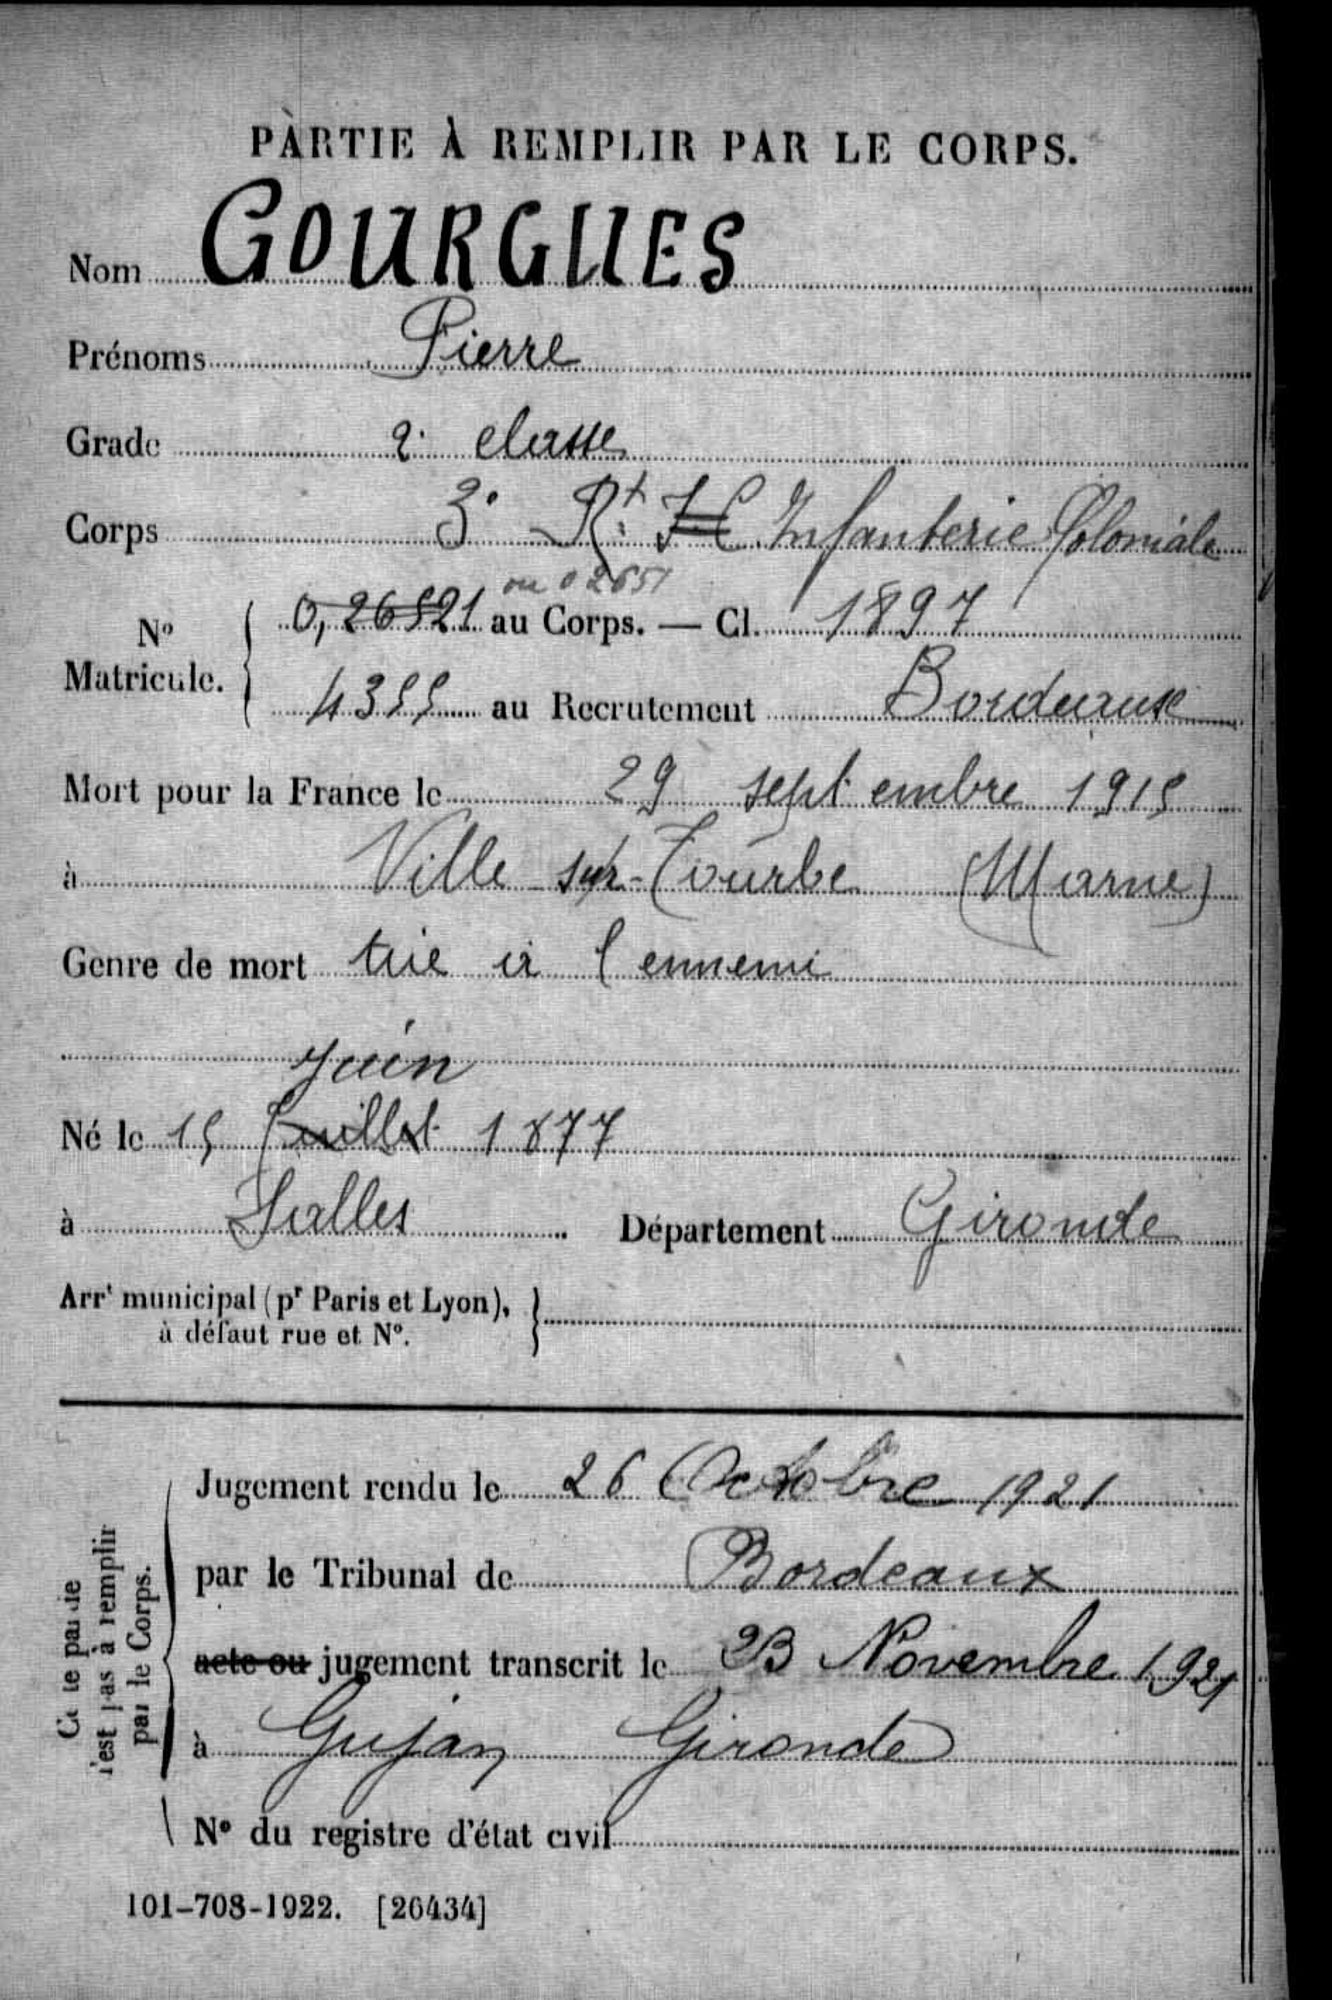 PARTIE À REMPLIR PAR LE CORPS.
Nom GOURGUES
Prénoms Pierre
Grade 2e classe
Corps 3e Rt I C Infanterie Coloniale
ou 02651
No Matricule. 0,26521 au Corps. — Cl. 1897
4355 au Recrutement Bordeaux
Mort pour la France le 29 septembre 1915
à Ville sur-Tourbe (Marne)
Genre de mort tué à l'ennemi
juin
Né le 15 Juillet 1877
à Salles Département Gironde
Arrt municipal (pr Paris et Lyon),
à défaut rue et No.
Cette partie
n'est pas à remplir
par le Corps.
Jugement rendu le 26 Octobre 1921
par le Tribunal de Bordeaux
acte ou jugement transcrit le 23 Novembre 1921
à Gujan Gironde
No du registre d'état civil
101-708-1922. [26434]